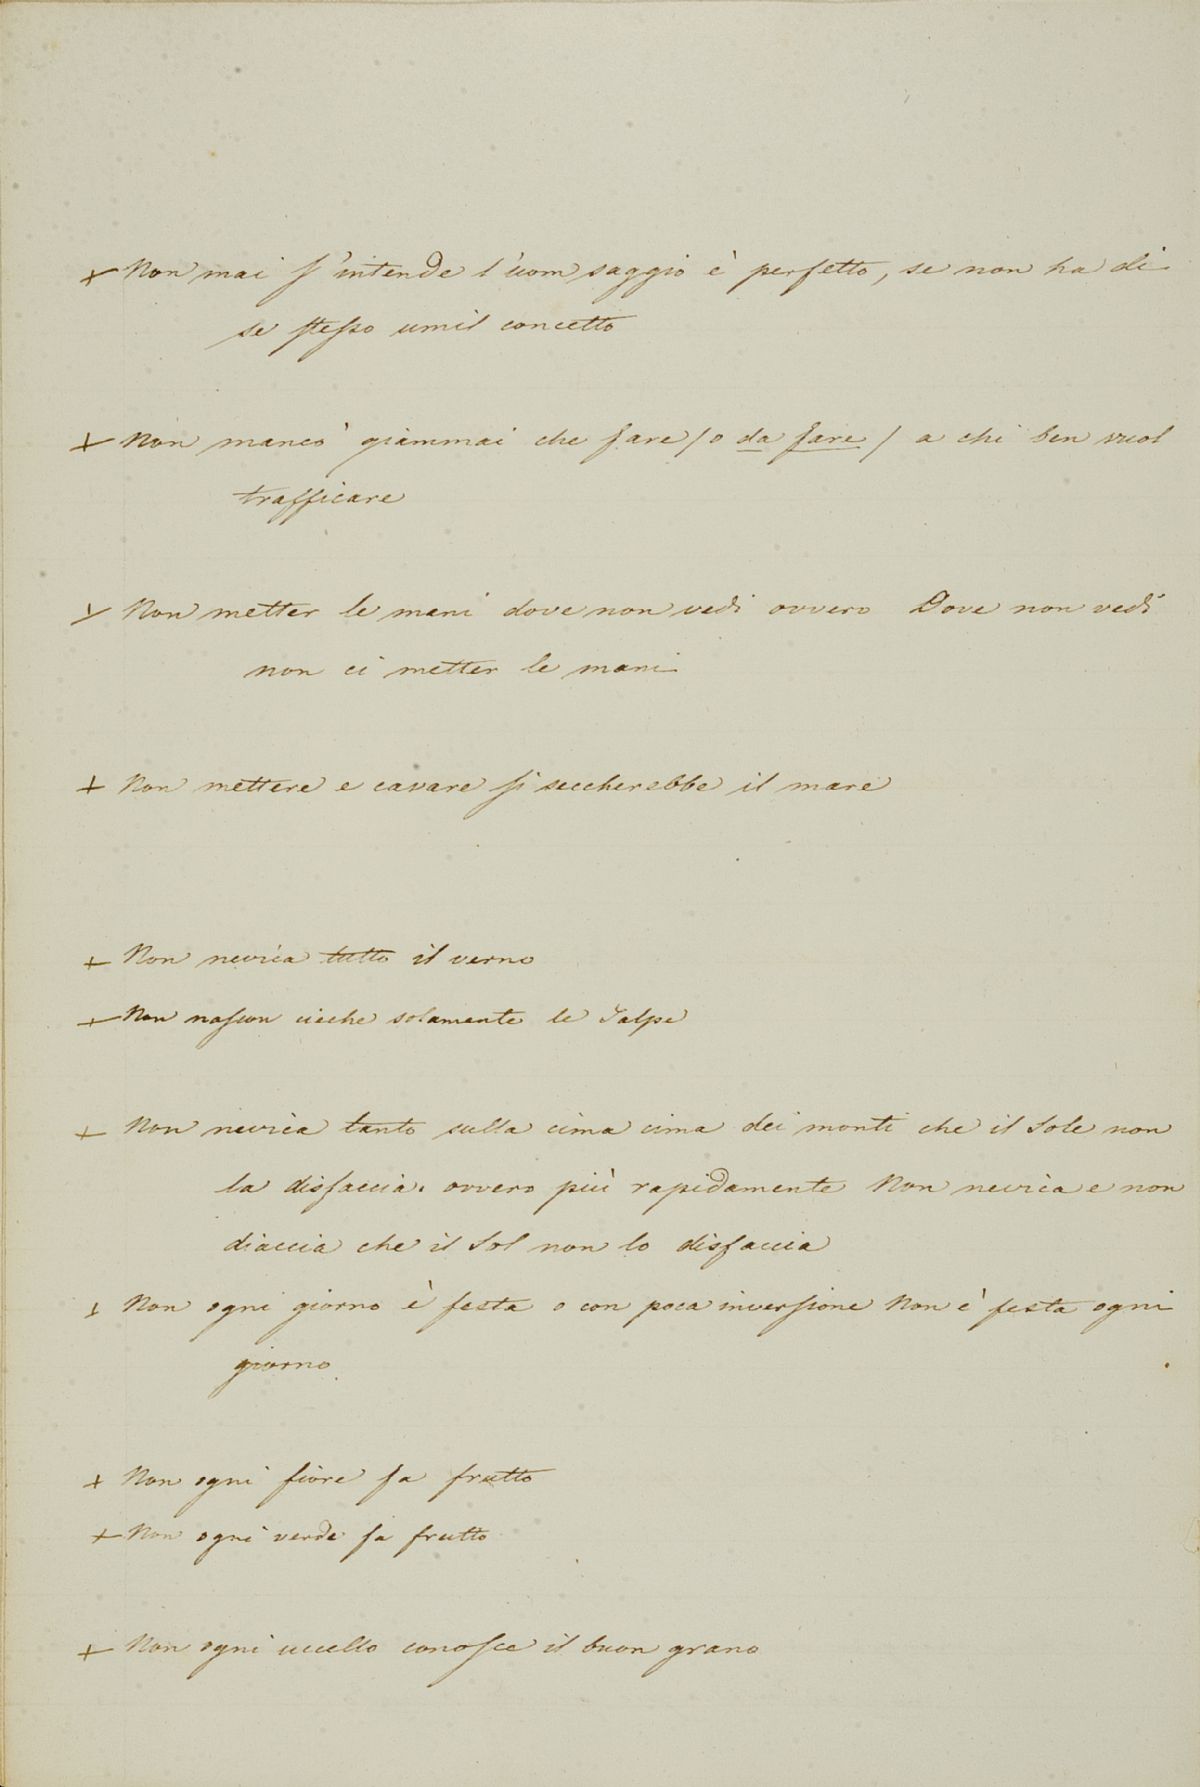 + Non mai s'intende l'uom saggio è perfetto, se non ha di
se stesso umil concetto
+ Non mancò giammai che fare / o da fare / a chi ben vuol
trafficare
+ Non metter le mani dove non vedi ovvero Dove non vedi
non ci metter le mani
+ Non mettere e cavare si seccherebbe il mare
+ Non nevica tutto il verno
+ Non nascon cieche solamente le Talpe
+ Non nevica tanto sulla cima cima dei monti che il Sole non
la disfaccia. ovvero più rapidamente Non nevica e non
diaccia che il Sol non lo disfaccia
+ Non ogni giorno è festa o con poca inversione Non è festa ogni
giorno
+ Non ogni fiore fa frutto
+ Non ogni verde fa frutto
+ Non ogni uccello conosce il buon grano